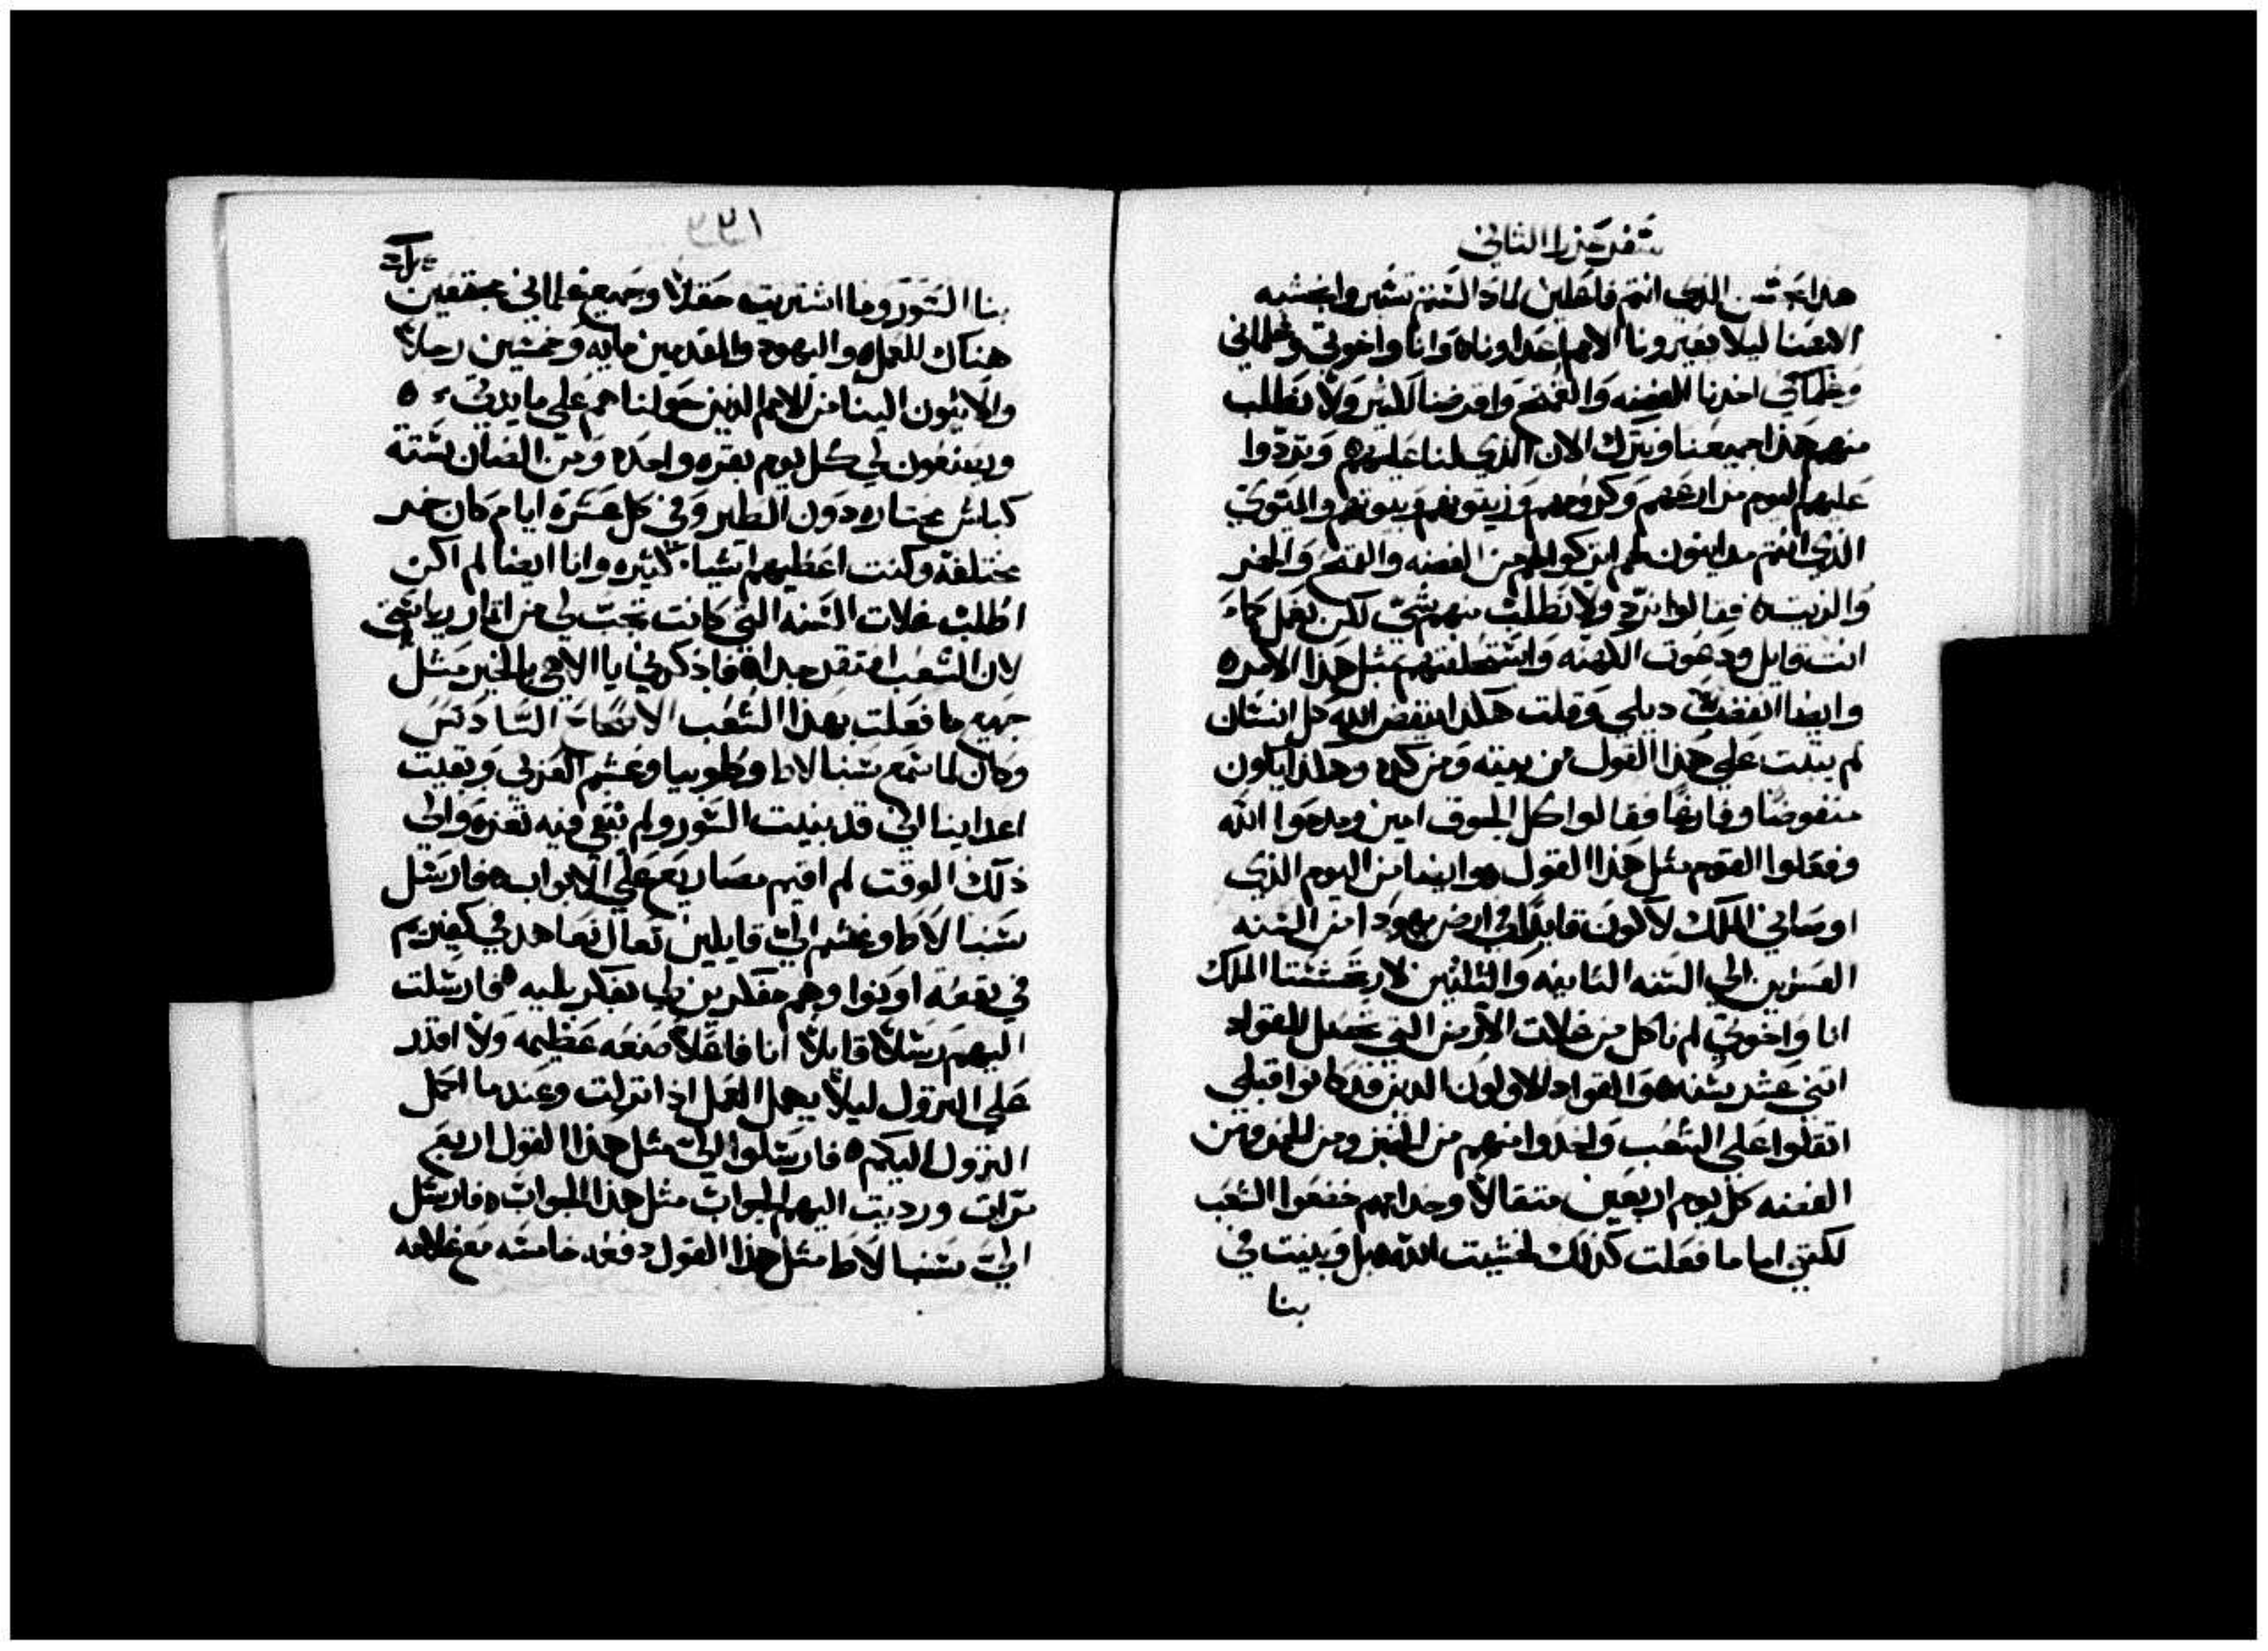 سفر عزرا الثاني
هذا بحسن الذي انتم فاعلين لماذا لستم تسيروا بخشيه
الاهنا ليلا يعيرونا الامم اعداوناه وانا واخوتي وغلماني
وخلماتي اخدنا الفضه والقمح واقرضنا للكثير ولا نطلب
منهم هذا جميعنا ونترك الان الذي لنا عليهم وتردوا
عليهم اليوم من ارضهم وكرومهم وزيتونهم وبيوتهم والمتوي
الذي انتم مداينون لهم اتركوا لهم من الفضه والقمح والخمر
والزيت ٥ فقالوا نرد ولا نطلب منهم شي لكن نفعل كما
انت قايل ودعوت الكهنه واستحلفتهم مثل هذا الامر ٥
وايضا انفضت ديلي وقلت هكذا ينفض الله كل انسان
لم يثبت علي هذا القول من بيته ومن كده وهكذا يكون
منفوضا وفارغا فقالوا كل الجوف امين ومدحوا الله
وفعلوا القوم مثل هذا القول ٥ وايضا من اليوم الذي
اوصاني الملك لاكون قايدا في ارض يهودا من السنه
العشرين الي السنه الثانيه والثلثين لارتحششتا الملك
انا واخوتي لم ناكل من غلات الارض التي تحصل للقواد
اتني عشر سنه ٥ والقواد الاولون الدين قد كانوا قبلي
اتقلوا علي الشعب واخدوا منهم من الخبز ومن الخمر ومن
الفضه كل يوم اربعين متقالا وخدامهم خضعوا الشعب
لكني اما ما فعلت كذلك لخشيت الله ٥ بل وبنيت في
بنا
٢٢١
بنا السور وما اشتريت حقلا وجميع غلماني مجتمعين
هناك للعمل ٥ واليهود والمقدمين مايه وخمسين رجلا
والاتيون الينا من الامم الذين حولنا هم علي مايدتي ٥
ويصنعون لي كل يوم بقره واحده ومن الضان ستة
كباش مختاره دون الطير وفي كل عشرة ايام كان خمر
مختلفة وكنت اعطيهم اشيا كثيره وانا ايضا لم اكن
اطلب غلات السنه التي كانت تجب لي من اتمار رياستي
لان الشعب افتقر جدا ٥ فاذكرني يا الاهي بالخير مثل
جميع ما فعلت بهذا الشعب الاصحاح السادس
وكان لما سمع سنبالاط وطوبيا وغشم العربي وبقيت
اعداينا اني قد بنيت السور ولم تبقي فيه ثغره والي
ذلك الوقت لم اقيم مصاريع علي الابواب ٥ فارسل
سنبالاط وغشم الي قايلين تعال نعاهد في كفيريم
في بقعة اونوا وهم مفكرين لي بفكر بليه ٥ فارسلت
اليهم رسلا قايلا انا فاعلا صنعه عظيمه ولا اقدر
علي النزول ليلا يهمل العمل اذا نزلت وعندما اكمل
النزول اليكم ٥ فارسلوا الي مثل هذا القول اربع
مرات ورديت اليهم الجواب مثل هذا الجواب ٥ فارسل
الي سنبالاط مثل هذا القول دفعه خامسه مع غلامه